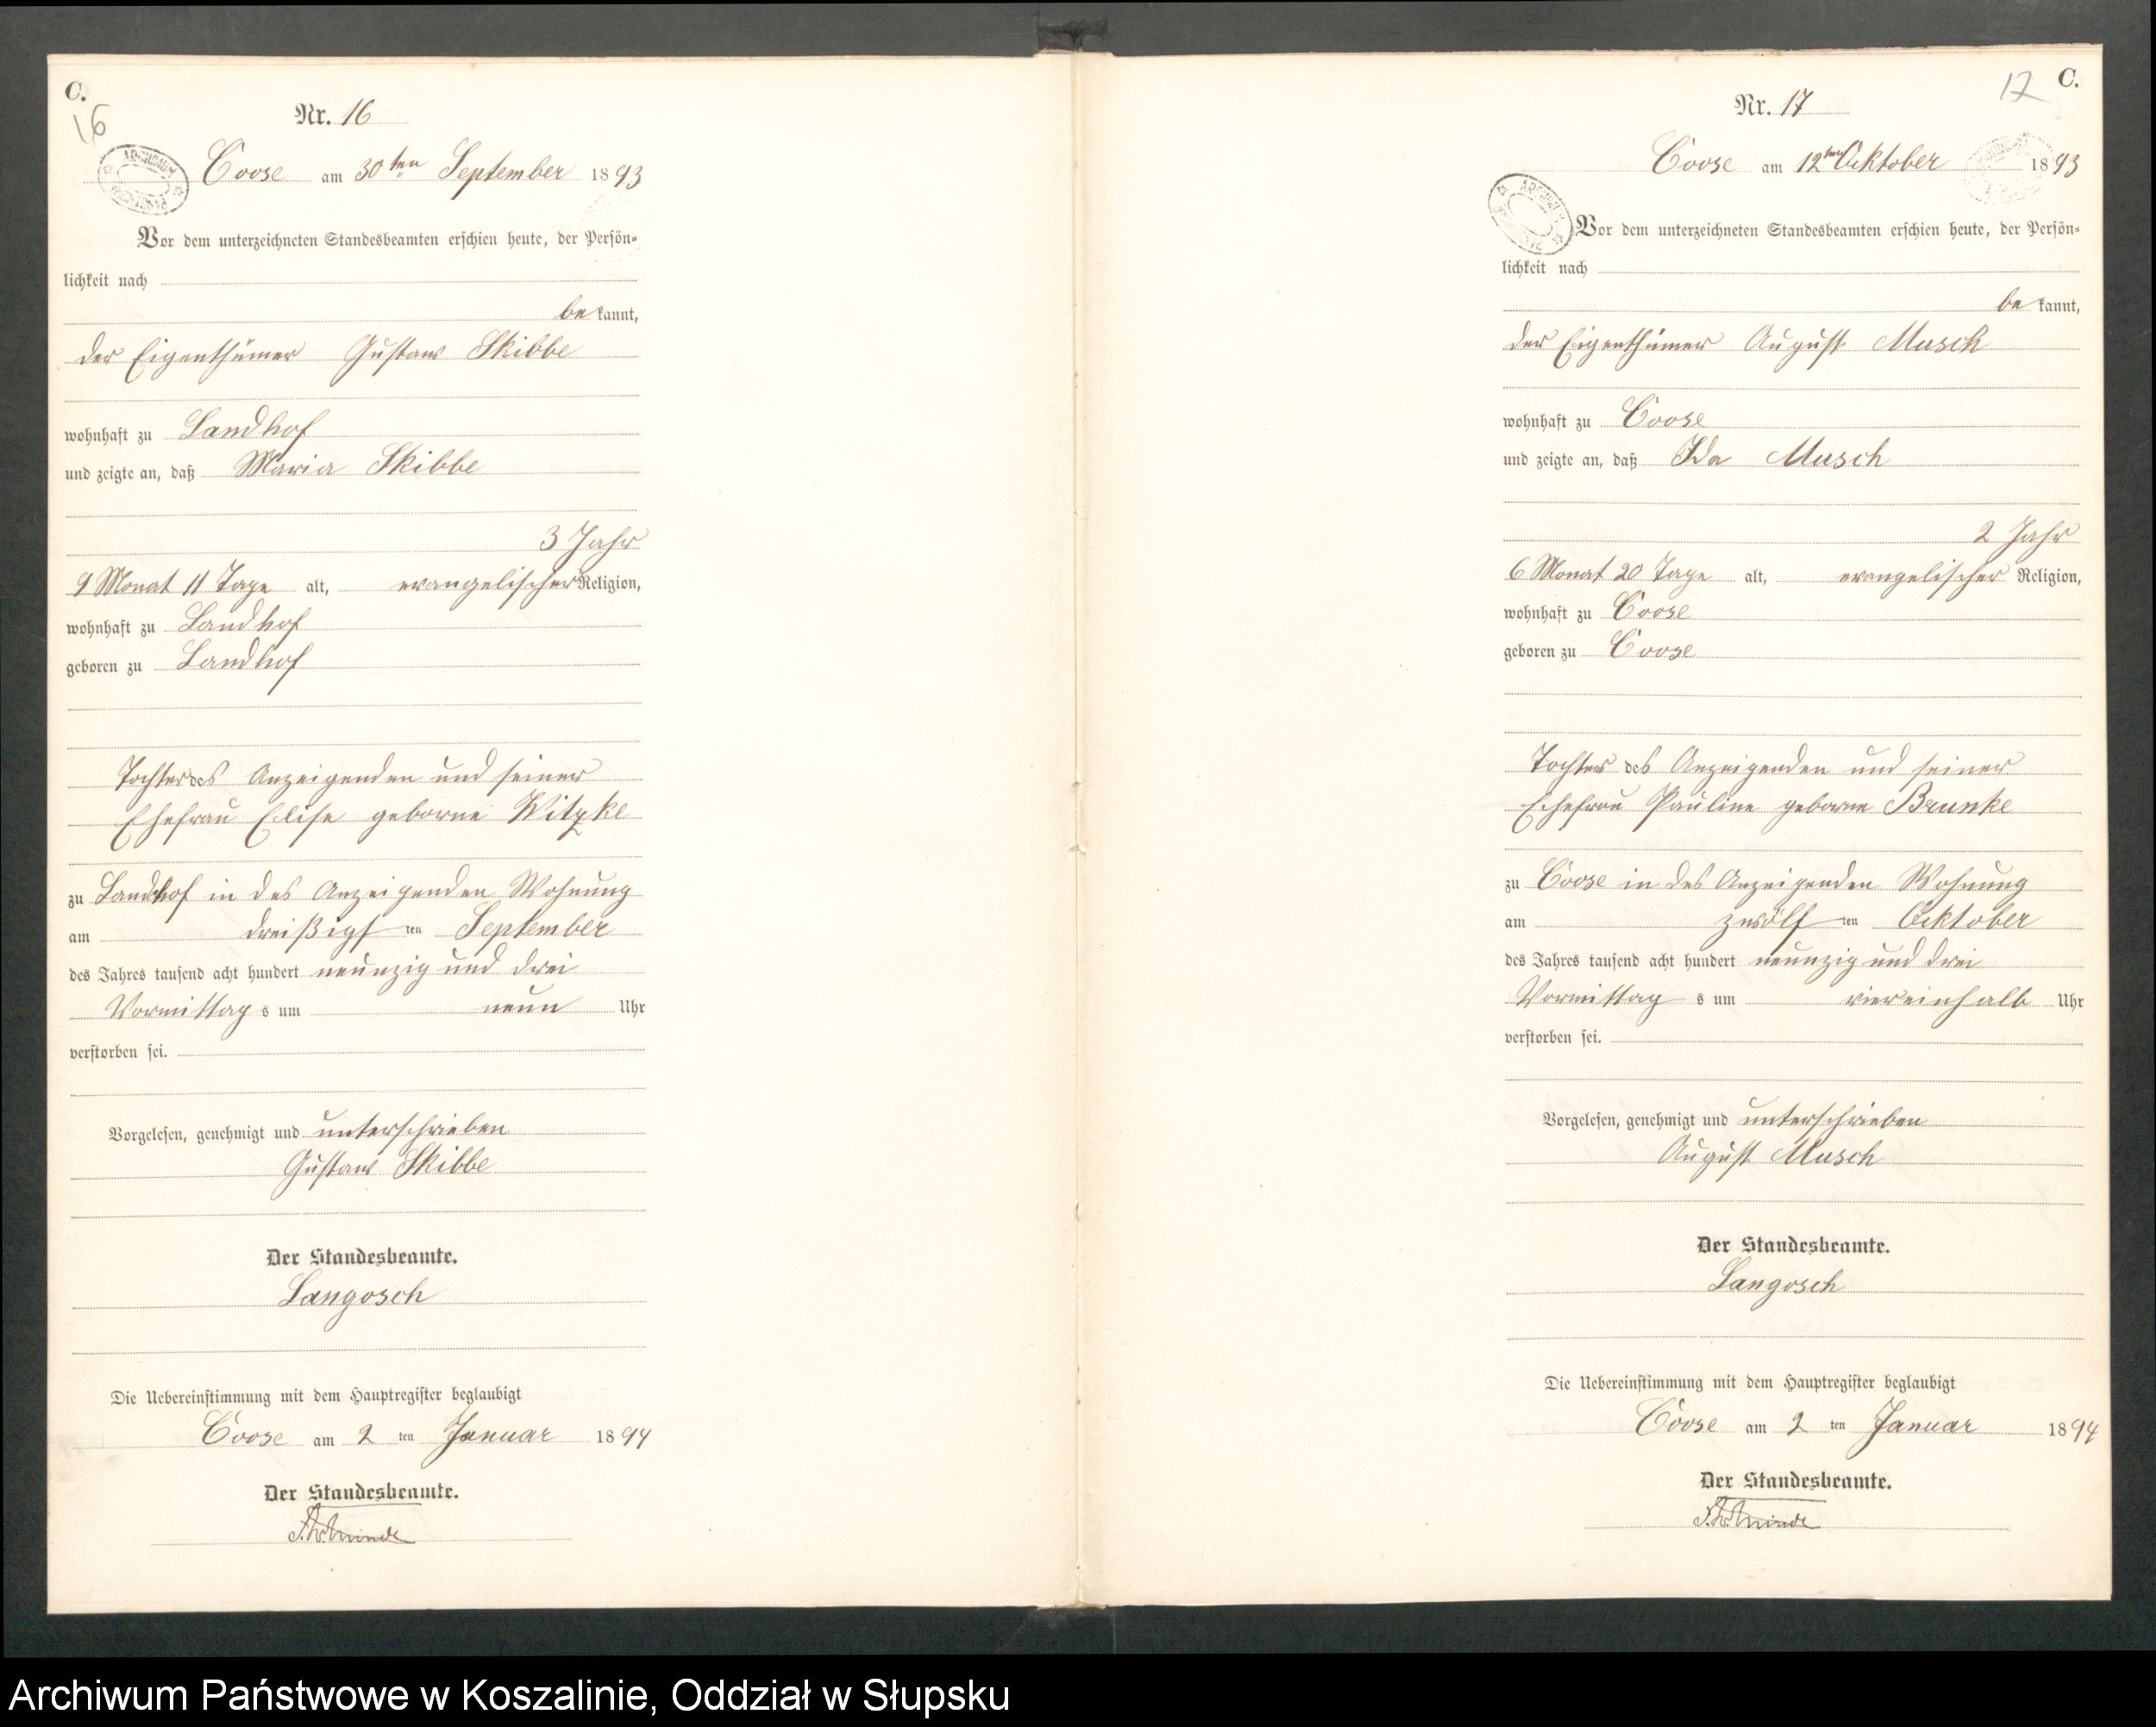 C.
16
Nr. 16
Coose am 30ten September 1893
Vor dem unterzeichneten Standesbeamten erschien heute, der Persön-
lichkeit nach
be kannt,
der Eigenthümer Gustav Skibbe
wohnhaft zu Landhof
und zeigte an, daß Maria Skibbe
3 Jahr
9 Monat 11 Tage alt, evangelischer Religion,
wohnhaft zu Landhof
geboren zu Landhof
Tochter des Anzeigenden und seiner
Ehefrau Elise geborne Witzke
zu Landhof in des Anzeigenden Wohnung
am dreißigs ten September
des Jahres tausend acht hundert neunzig und drei
Vormittag s um neun Uhr
verstorben sei.
Vorgelesen, genehmigt und unterschrieben
Gustav Skibbe
Der Standesbeamte.
Langosch
Die Uebereinstimmung mit dem Hauptregister beglaubigt
Coose am 2 ten Januar 1894
Der Standesbeamte.
17
C.
Nr. 17
Coose am 12ten Oktober 1893
Vor dem unterzeichneten Standesbeamten erschien heute, der Persön-
lichkeit nach
be kannt,
der Eigenthümer August Musch
wohnhaft zu Coose
und zeigte an, daß Ida Musch
2 Jahr
6 Monat 20 Tage alt, evangelischer Religion,
wohnhaft zu Coose
geboren zu Coose
Tochter des Anzeigenden und seiner
Ehefrau Pauline geborne Brunke
zu Coose in des Anzeigenden Wohnung
am zwölf ten Oktober
des Jahres tausend acht hundert neunzig und drei
Vormittag s um viereinhalb Uhr
verstorben sei.
Vorgelesen, genehmigt und unterschrieben
August Musch
Der Standesbeamte.
Langosch
Die Uebereinstimmung mit dem Hauptregister beglaubigt
Coose am 2 ten Januar 1894
Der Standesbeamte.
Archiwum Państwowe w Koszalinie, Oddział w Słupsku